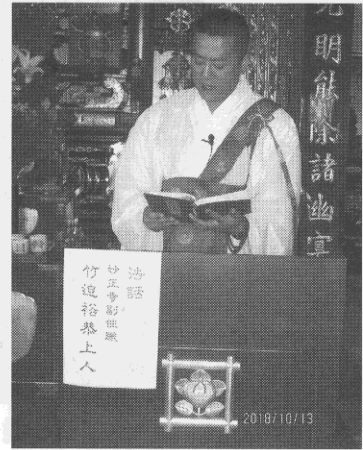 光明能除諸幽冥
法話
妙正寺副住職
竹迫裕恭上人
2018/10/13